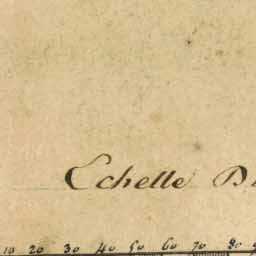 Echelle D
10 20 30 40 50 60 70 80